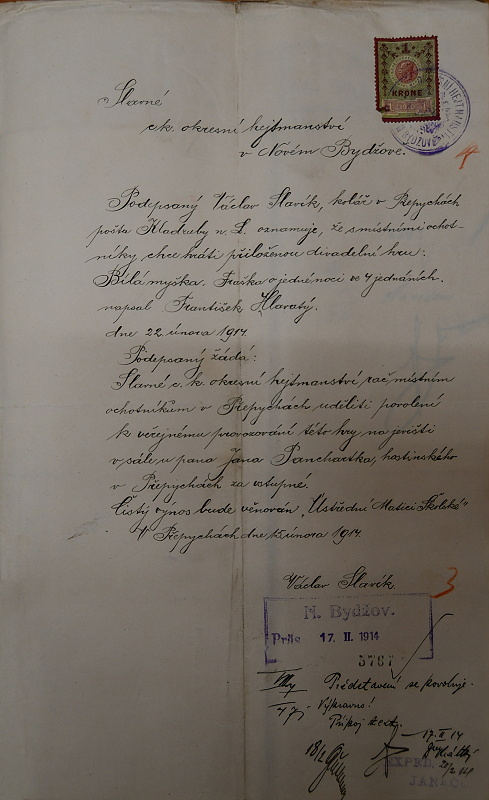 1
KRONE
Slavné
c.k. okresní hejtmanství
v Novém Bydžově.
4
Podepsaný Václav Slavík, kolář v Přepychách
pošta Kladruby n. L. oznamuje, že s místními ochot-
níky, chce hráti přiloženou divadelní hru:
Bílá myška. Fraška o jedné noci ve 4 jednáních.
napsal František Hlavatý.
dne 22. února 1914.
Podepsaný žádá:
Slavné c. k. okresní hejtmanství rač místním
ochotníkům v Přepychách uděliti povolení
k veřejnému provozování této hry na jevišti
v sále u pana Jana Panchartka, hostinského
v Přepychách za vstupné.
Čistý výnos bude věnován „Ústřední Matici Školské"
V Přepychách dne 15. února 1914.
Václav Slavík.
3
N. Bydžov.
Präs 17. II. 1914
5767
Představení se povoluje.
Vypraveno!
17. II 14
18/2
EXPED.